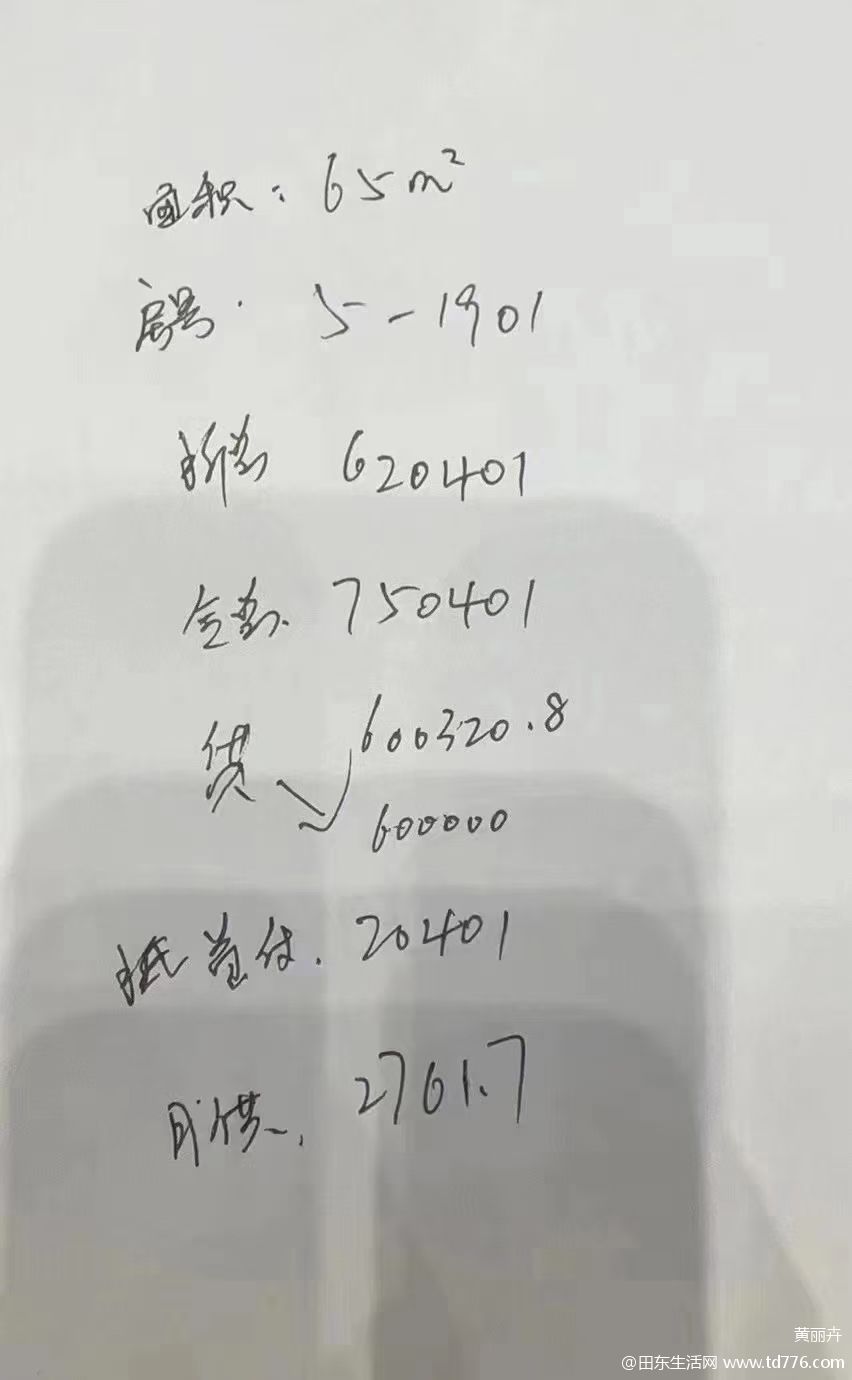 面积：65m²
房号. 5-1901
拆款 620401
全款. 750401
贷 600320.8
600000
抵首付. 20401
月供. 2761.7
黄丽卉
@田东生活网 www.td776.com